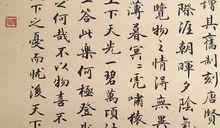 增其舊制刻唐賢
際涯朝暉夕陰氣
覽物之情得無異
薄暮冥冥虎嘯猿
上下天光一碧萬頃
互答此樂何極登
之何哉不以物喜不
下之憂而憂後天下